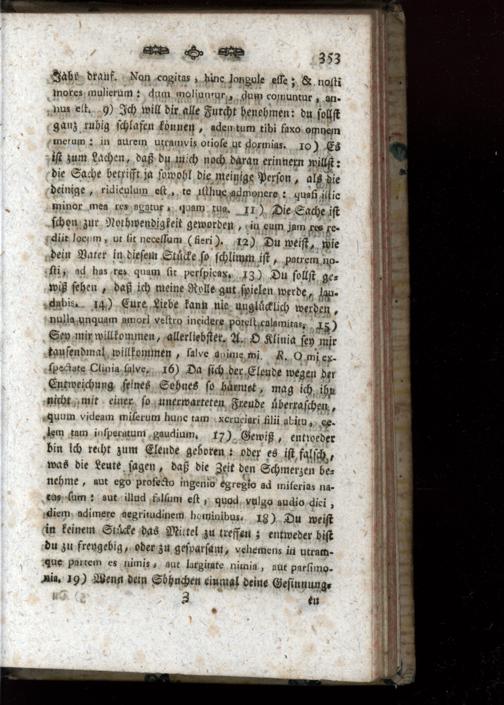 353
Jahr drauf. Non cogitas, hinc longule esse; & nosti
mores mulierum: dum moliuntur, dum comuntur, an-
nus est. 9) Ich will dir alle Furcht benehmen: du sollst
ganz ruhig schlafen können, ademtum tibi faxo omnem
metum: in aurem utramvis otiose ut dormias. 10) Es
ist zum Lachen, daß du mich noch daran erinnern willst:
die Sache betrifft ja sowohl die meinige Person, als die
deinige, ridiculum est, te isthuc admonere: quasi istic
minor mea res agatur, quam tua. 11) Die Sache ist
schon zur Nothwendigkeit geworden, in eum jam res re-
diit locum, ut sit necessum (fieri). 12) Du weist, wie
dein Vater in diesem Stücke so schlimm ist, patrem no-
sti, ad has res quam sit perspicax. 13) Du sollst ge-
wiß sehen, daß ich meine Rolle gut spielen werde, lau-
dabis. 14) Eure Liebe kann nie unglücklich werden,
nulla unquam amori vestro incidere potest calamitas. 15)
Sey mir willkommen, allerliebster. A. O Klinia sey mir
tausendmal willkommen, salve anime mi. R. O mi ex-
spectate Clinia salve. 16) Da sich der Elende wegen der
Entweichung seines Sohnes so härmet, mag ich ihn
nicht mit einer so unerwarteten Freude überraschen,
quum videam miserum hunc tam excruciari filii abitu, ce-
lem tam insperatum gaudium. 17) Gewiß, entweder
bin ich recht zum Elende geboren: oder es ist falsch,
was die Leute sagen, daß die Zeit den Schmerzen be-
nehme, aut ego profecto ingenio egregio ad miserias na-
tus sum: aut illud falsum est, quod vulgo audio dici,
diem adimere aegritudinem hominibus. 18) Du weist
in keinem Stücke das Mittel zu treffen; entweder bist
du zu freygebig, oder zu gesparsam, vehemens in utram-
que partem es nimis, aut largitate nimia, aut parsimo-
nia. 19) Wenn dein Söhnchen einmal deine Gesinnung-
Z en